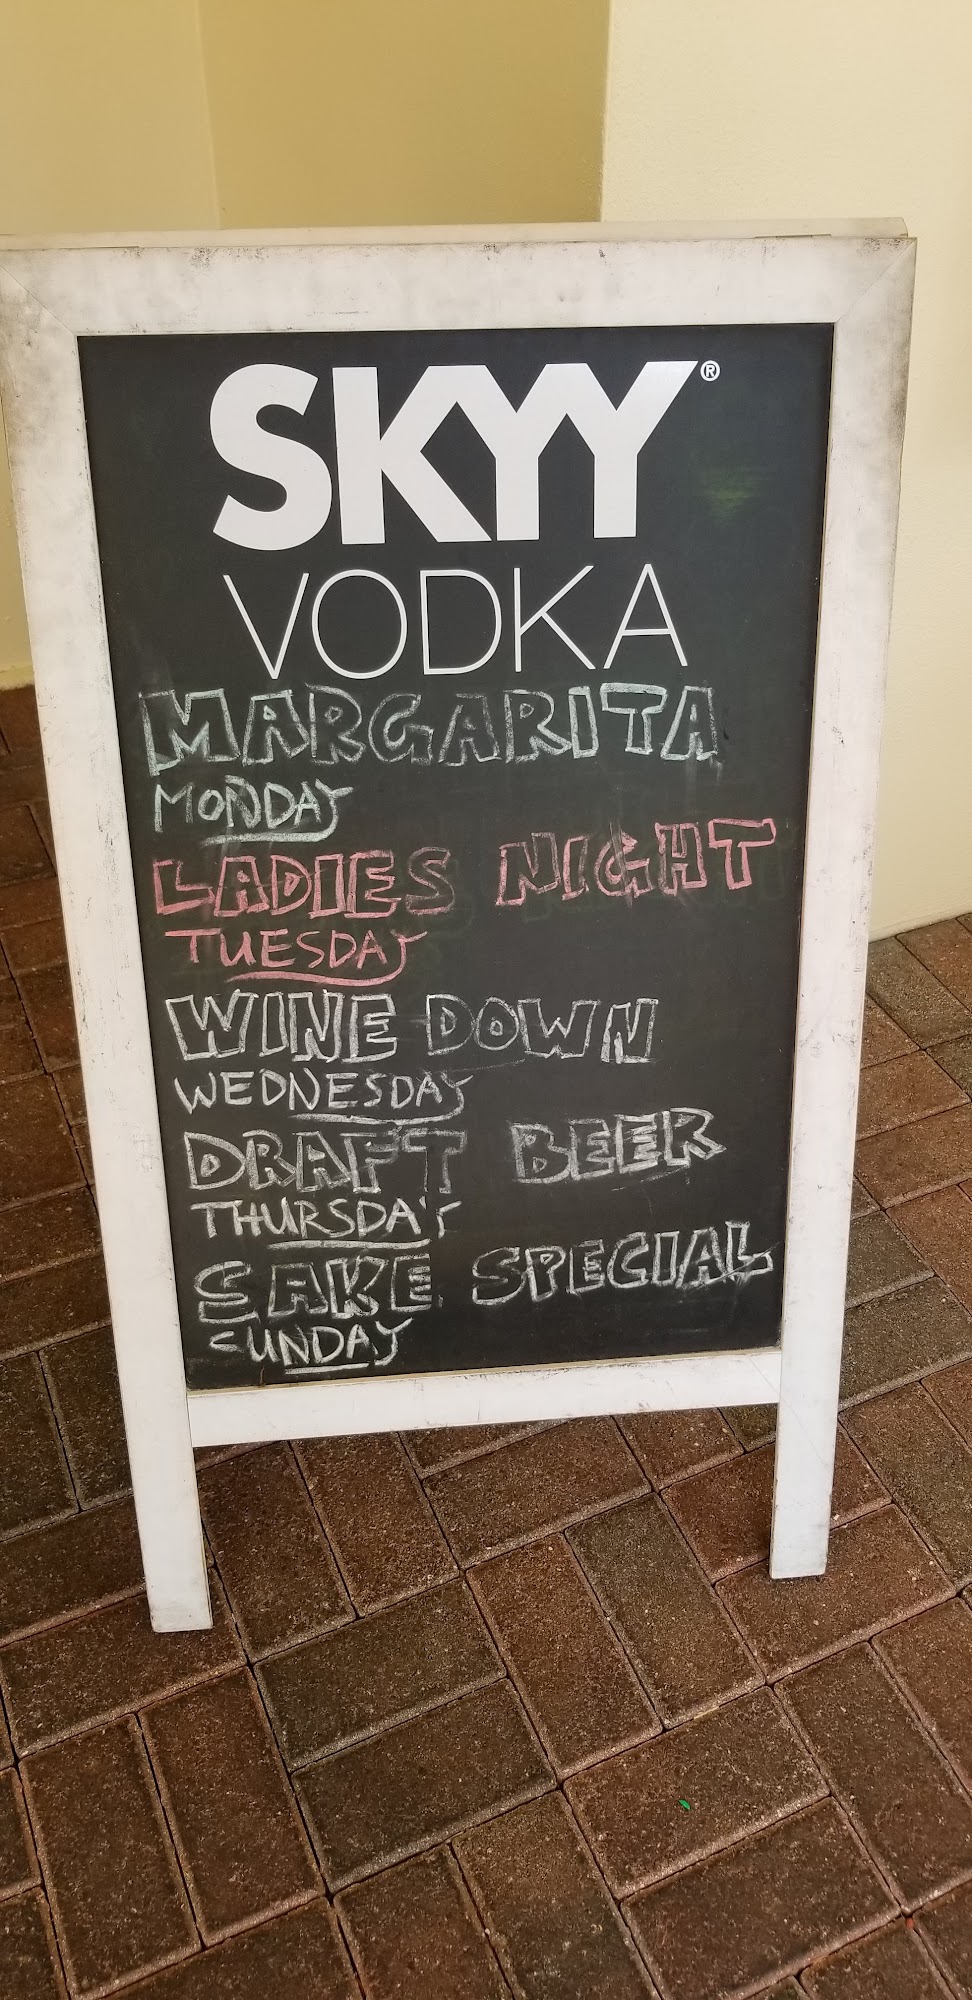 SKYY®
VODKA
MARGARITA
MONDAY
LADIES NIGHT
TUESDAY
WINE DOWN
WEDNESDAY
DRAFT BEER
THURSDAY
SAKE SPECIAL
SUNDAY